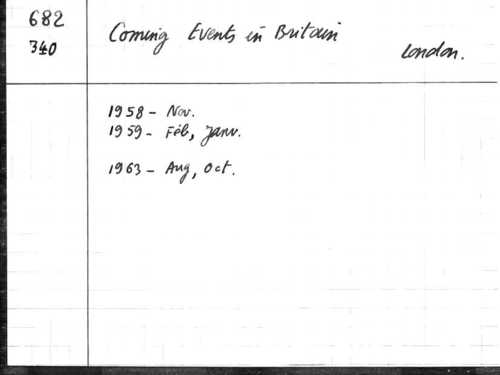 682
340
Coming Events in Britain
London.
1958 - Nov.
1959 - Féb, Janv.
1963 - Aug, Oct.